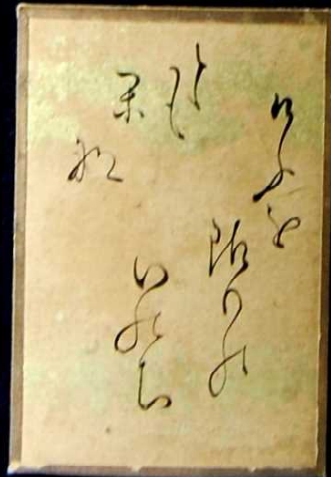 けふを
限りの
いのち
とも
か
な